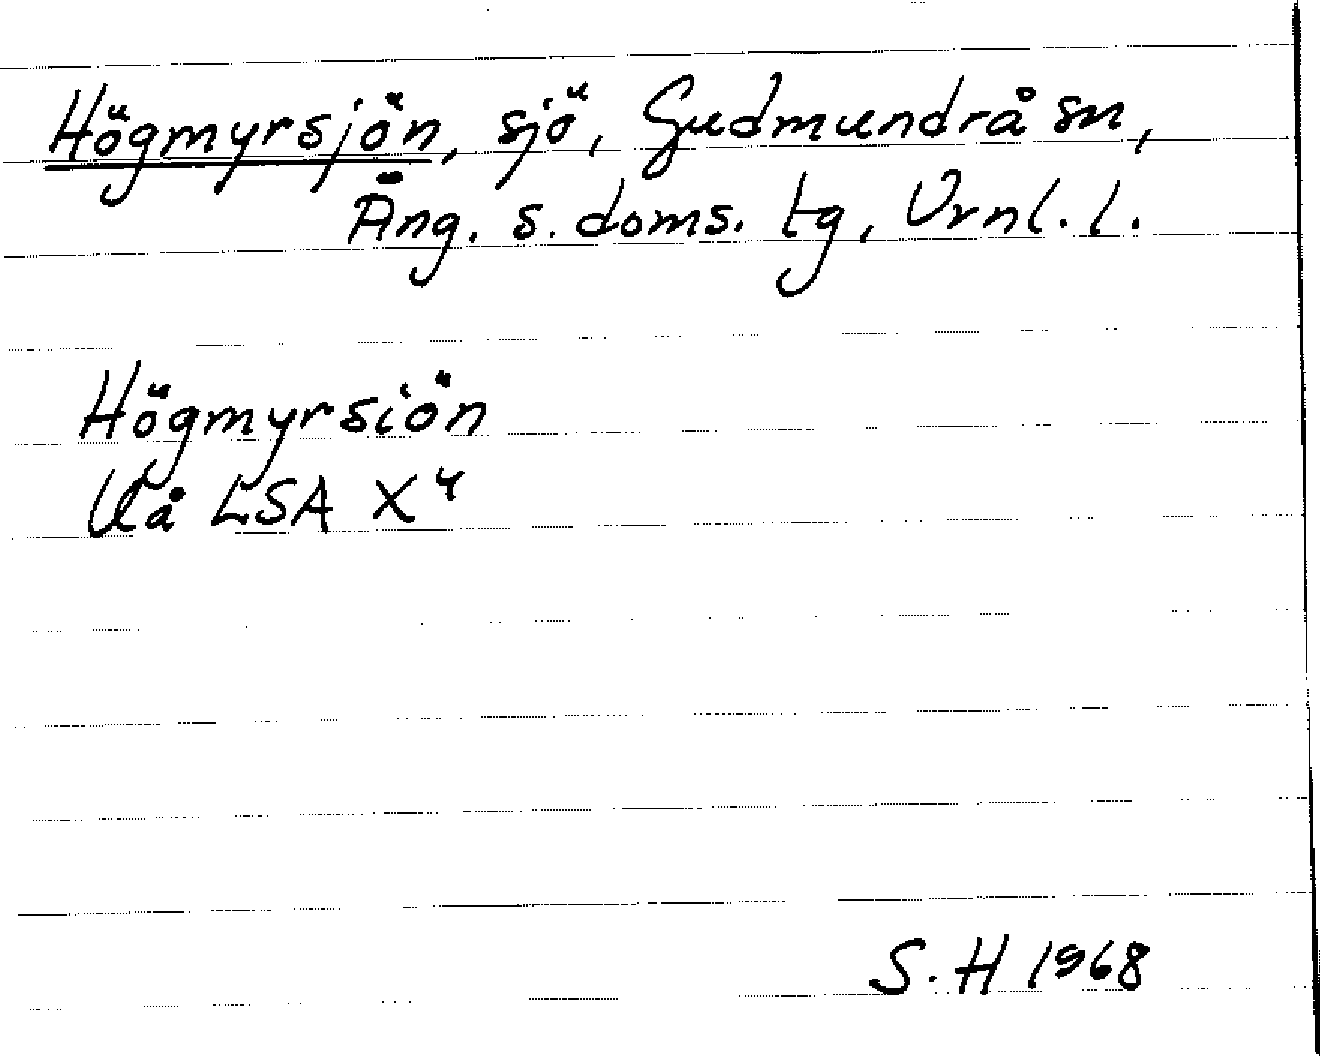 Högmyrsjön, sjö, Gudmundrå sn,
Äng. s. doms. tg, Vrnl. l.
Högmyrsiön
Uå LSA X4
S. H 1968